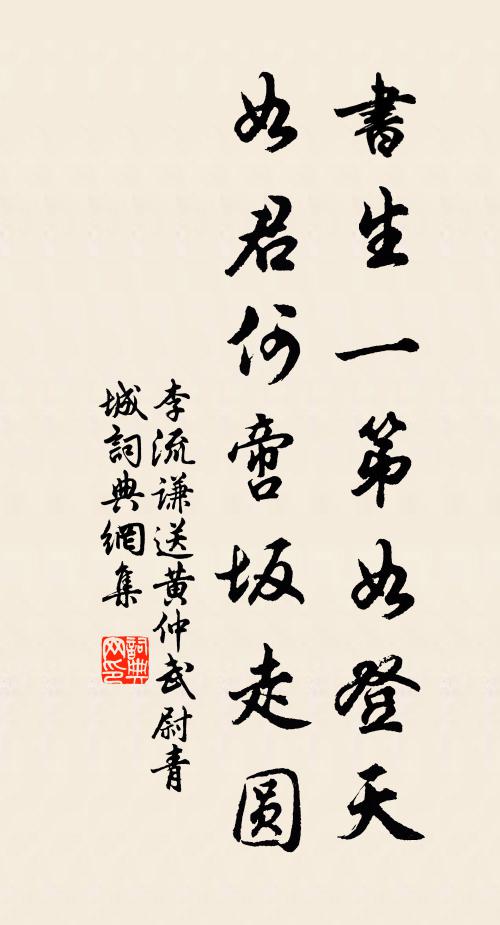 書生一第如登天
如君何啻坂走圆
李流謙送黄仲武尉青
城詞典網集
詞典
网印